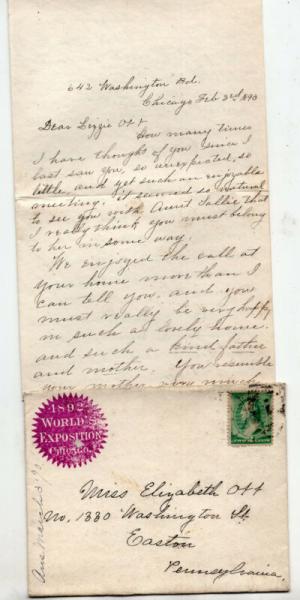 642 Washington Bd.
Chicago Feb 3rd 1890
Dear Lizzie Ott
How many times
I have thought of you since I
last saw you, so unexpected, so
little and yet such an enjoyable
meeting. it seemed so natural
to see you with Aunt Sallie, that
I really think you must belong
to her in some way.
We enjoyed the call at
your home more than I
can tell you, and you
must really be very happy
in such a lovely home.
and such a kind father
and mother. You resemble
your mother very much
1892
WORLD'S
EXPOSITION
CHICAGO
Miss Elizabeth Ott
No. 1330 Washington St.
Easton
Pennsylvania.
Ans March 3/90